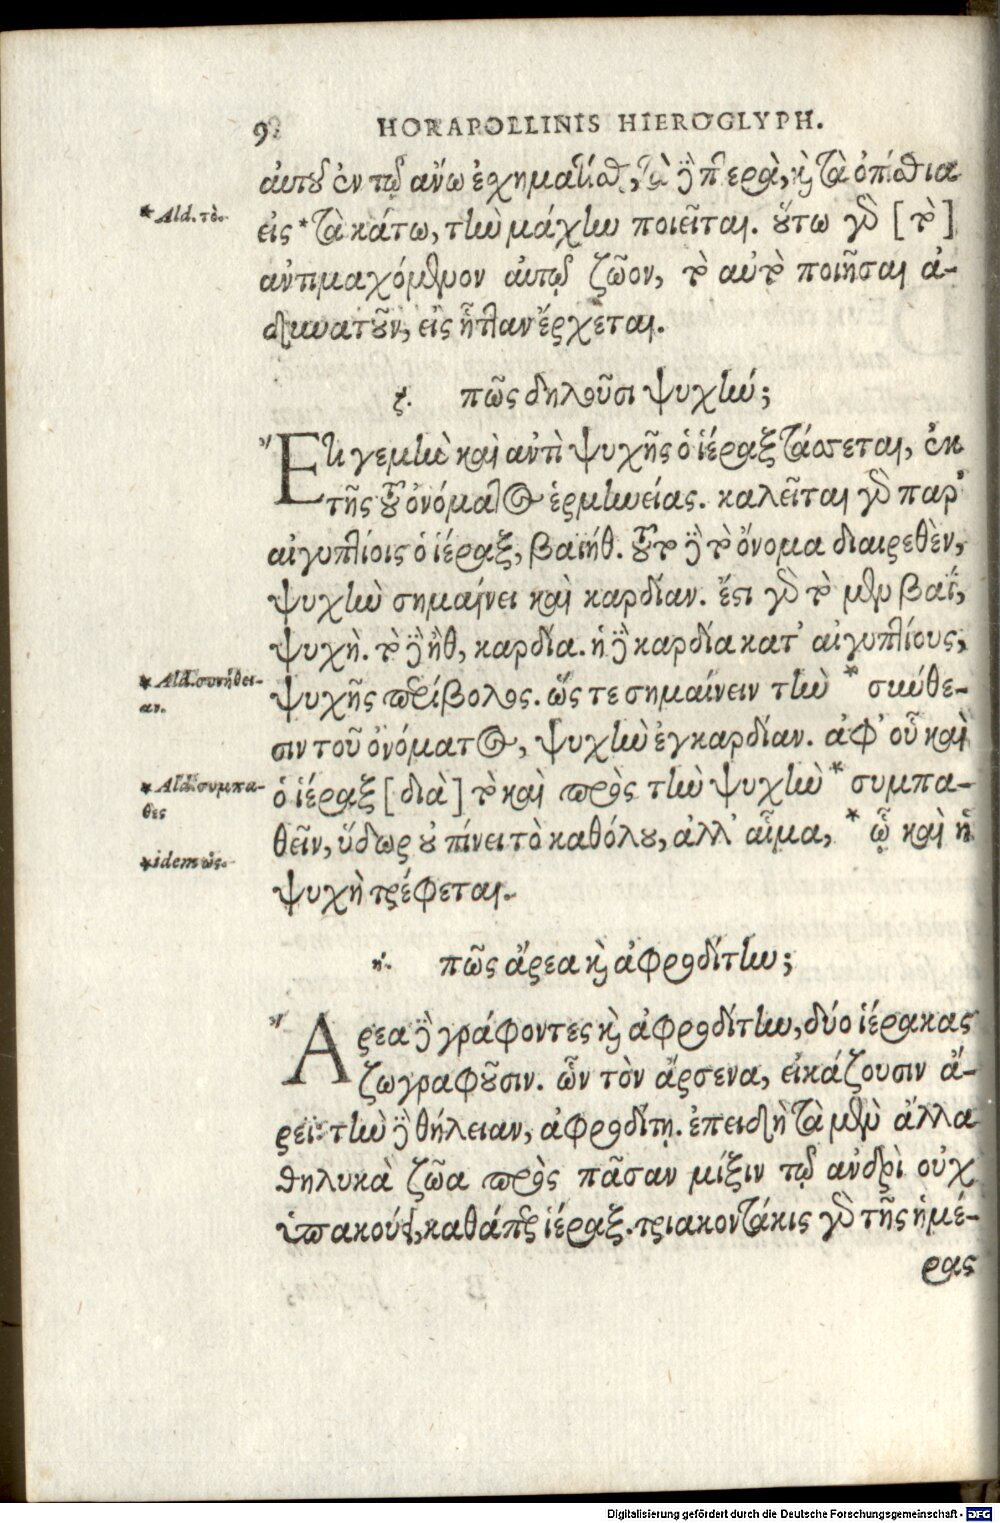 9
HORAPOLLINIS HIEROGLYPH.
αὐτοῦ ἐν τῷ ἄνω ἐσχημάτισε, τὰ δὲ πτερὰ, καὶ τὰ ὀπίσθια
* Ald. τὸ.
εἰς * τὰ κάτω, τὴν μάχην ποιεῖται. οὕτω γὰρ [τὸ]
ἀντιμαχόμενον αὐτῷ ζῶον, τὸ αὐτὸ ποιῆσαι ἀ-
δυνατοῦν, εἰς ἧτταν ἔρχεται.
ζ. πῶς δηλοῦσι ψυχήν;
Ἔτι γεμὴν καὶ ἀντὶ ψυχῆς ὁ ἱέραξ τάσσεται, ἐκ
τῆς τοῦ ὀνόματος ἑρμηνείας. καλεῖται γὰρ παρ'
αἰγυπτίοις ὁ ἱέραξ, βαιήθ. τοῦτο δὲ τὸ ὄνομα διαιρεθὲν,
ψυχὴν σημαίνει καὶ καρδίαν. ἔστι γὰρ τὸ μὲν βαῒ,
ψυχὴ. τὸ δὲ ἢθ, καρδία. ἡ δὲ καρδία κατ' αἰγυπτίους,
* Ald. συνήθει-
αν.
ψυχῆς περίβολος. ὥς τε σημαίνειν τὴν * σύνθε-
σιν τοῦ ὀνόματος, ψυχὴν ἐγκαρδίαν. ἀφ' οὗ καὶ
* Ald. συμπα-
θὲς
ὁ ἱέραξ [διὰ] τὸ καὶ πρὸς τὴν ψυχὴν * συμπα-
θεῖν, ὕδωρ οὐ πίνει τὸ καθόλου, ἀλλ' αἷμα, * ᾧ καὶ ἡ
* idem ὡς.
ψυχὴ τρέφεται.
η. πῶς ἄρεα καὶ ἀφροδίτην;
Ἄρεα δὲ γράφοντες καὶ ἀφροδίτην, δύο ἱέρακας
ζωγραφοῦσιν. ὧν τὸν ἄρσενα, εἰκάζουσιν ἄ-
ρεϊ· τὴν δὲ θήλειαν, ἀφροδίτῃ. ἐπειδὴ τὰ μὲν ἄλλα
θηλυκὰ ζῶα πρὸς πᾶσαν μίξιν τῷ ἀνδρὶ οὐχ
ὑπακούει, καθάπερ ἱέραξ. τριακοντάκις γὰρ τῆς ἡμέ-
ρας
Digitalisierung gefördert durch die Deutsche Forschungsgemeinschaft - DFG